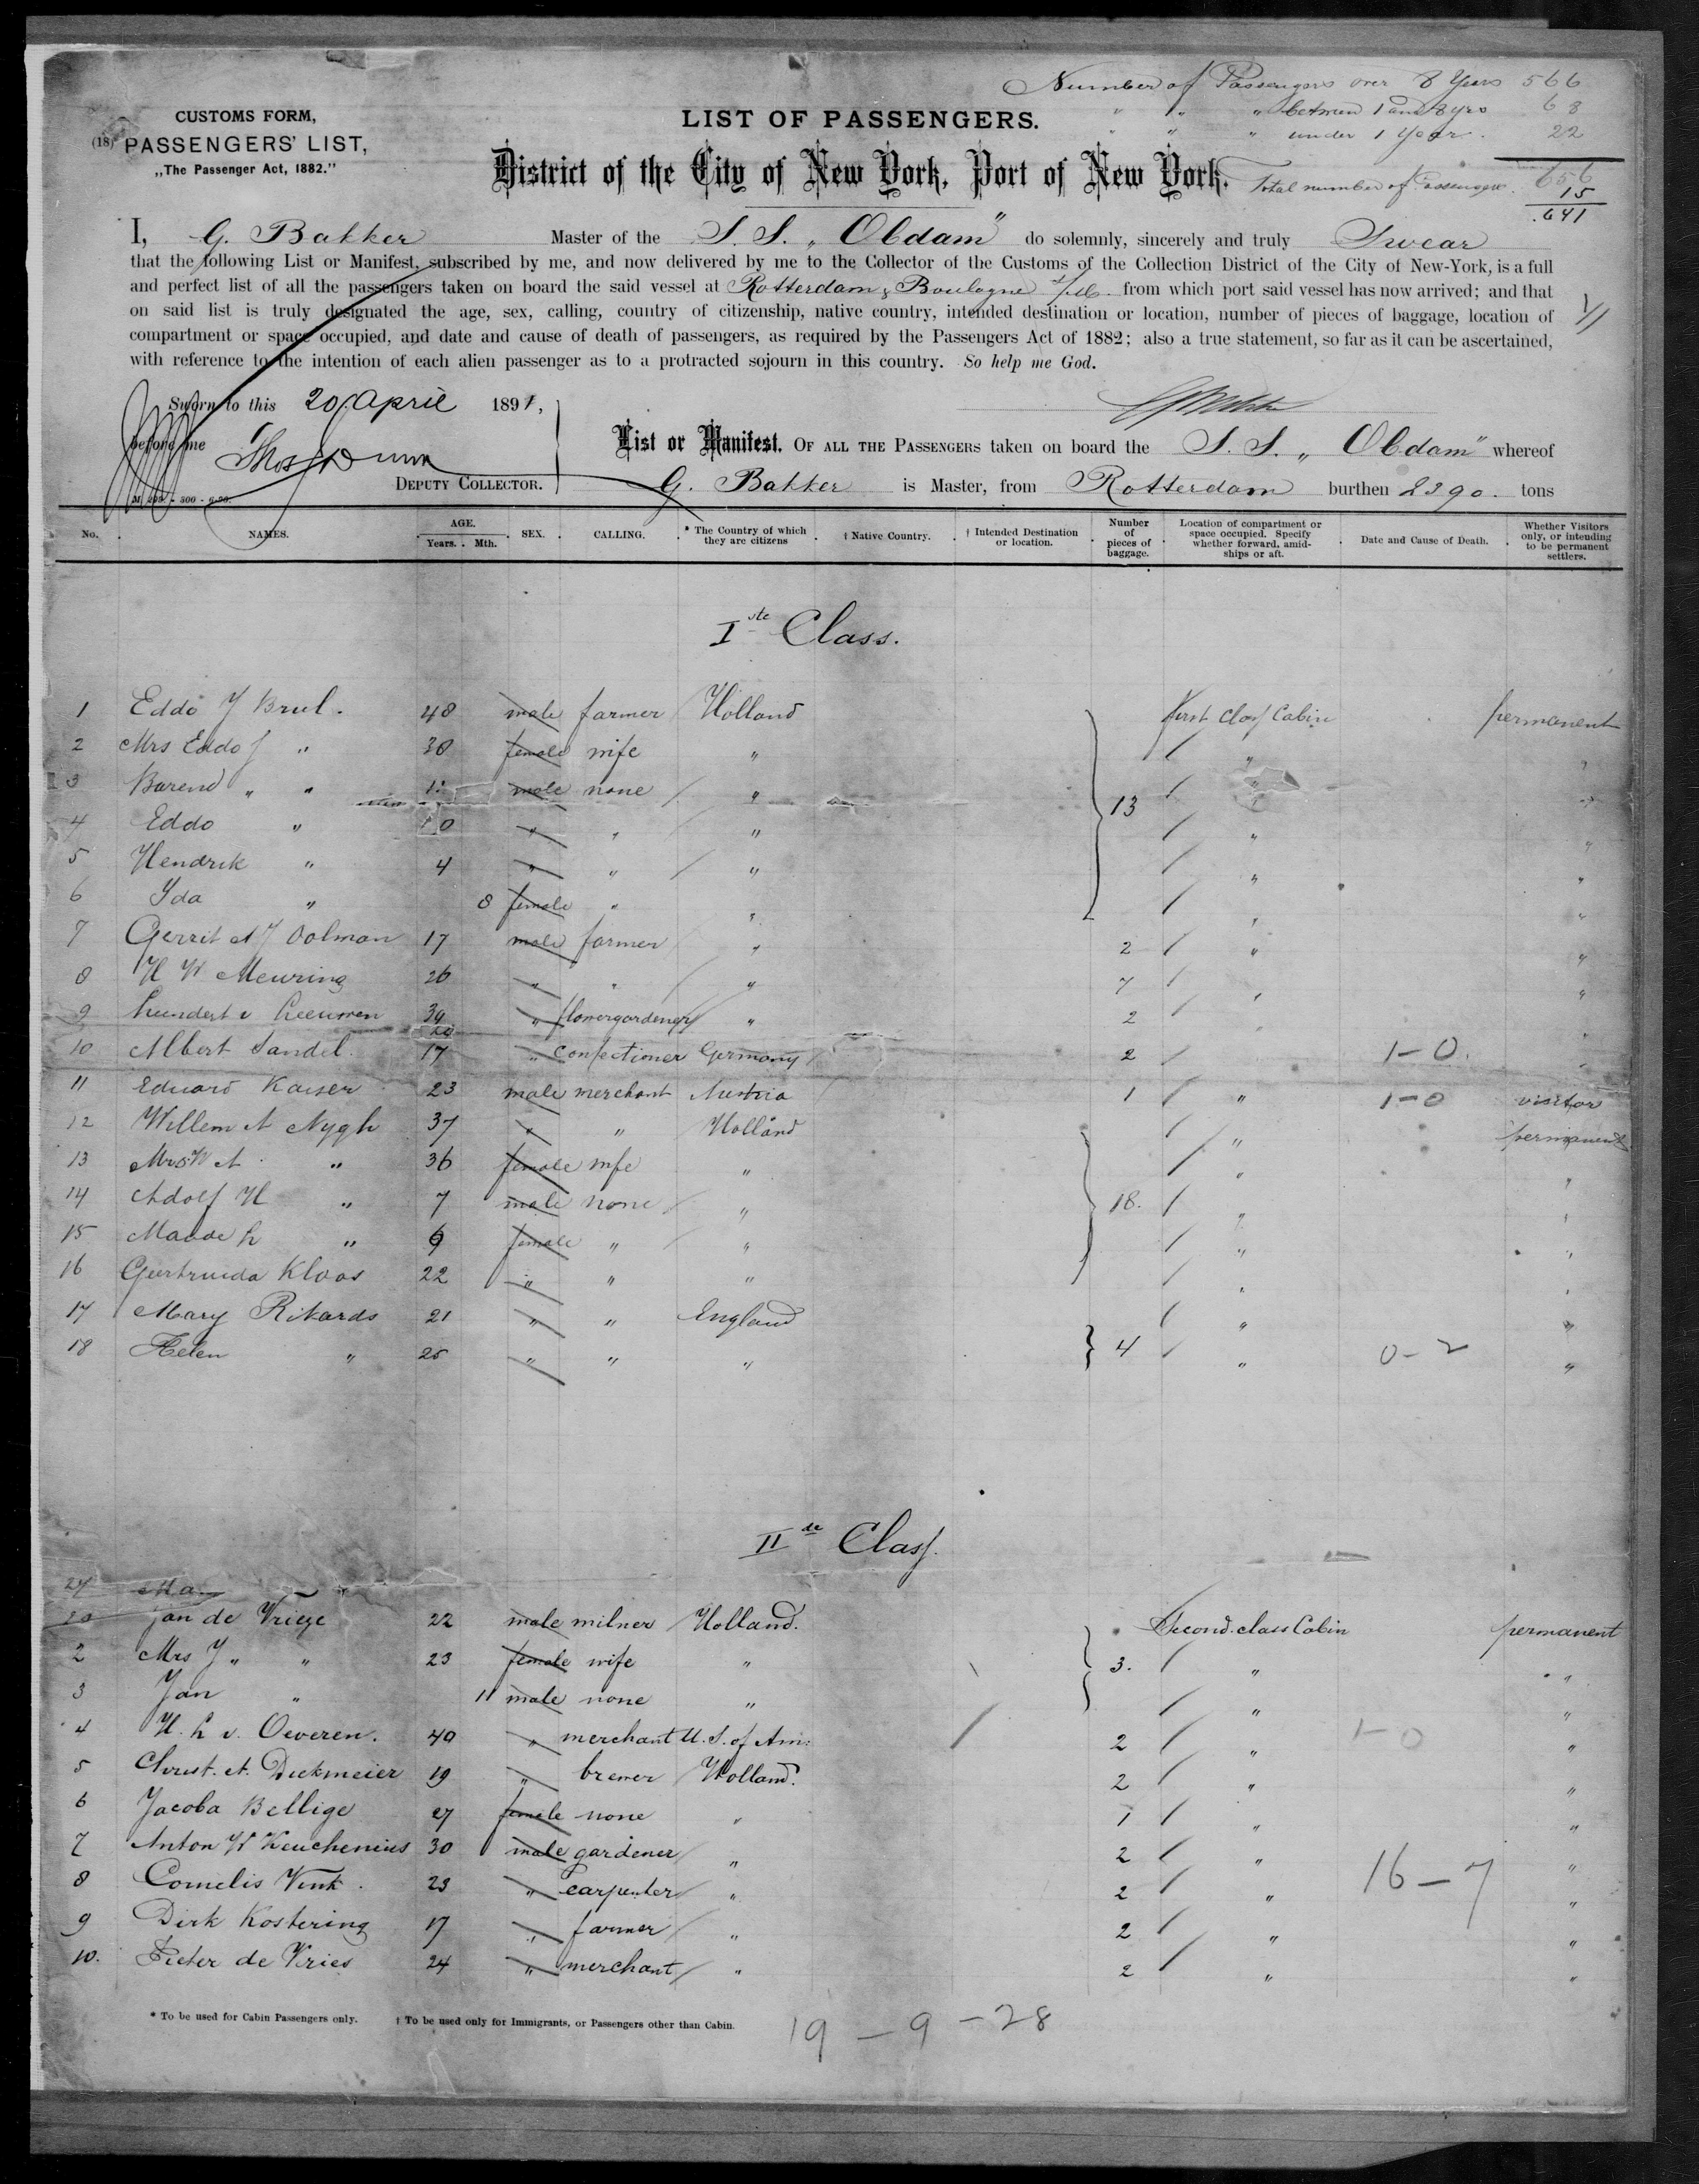 Number of Passengers over 8 Years 566
" " " between 1 and 8 yrs 68
" " " under 1 Year. 22
Total number of Passengers. 656
15
641
CUSTOMS FORM,
(18) PASSENGERS' LIST,
„The Passenger Act, 1882."
LIST OF PASSENGERS.
District of the City of New York, Port of New York.
I, G. Bakker Master of the S. S. „Obdam" do solemnly, sincerely and truly Swear
that the following List or Manifest, subscribed by me, and now delivered by me to the Collector of the Customs of the Collection District of the City of New-York, is a full
and perfect list of all the passengers taken on board the said vessel at Rotterdam & Boulogne from which port said vessel has now arrived; and that
on said list is truly designated the age, sex, calling, country of citizenship, native country, intended destination or location, number of pieces of baggage, location of
compartment or space occupied, and date and cause of death of passengers, as required by the Passengers Act of 1882; also a true statement, so far as it can be ascertained,
with reference to the intention of each alien passenger as to a protracted sojourn in this country. So help me God.
Sworn to this 20 April 1891,
before me Thos Dunn
DEPUTY COLLECTOR.
List or Manifest. OF ALL THE PASSENGERS taken on board the S. S. „Obdam" whereof
G. Bakker is Master, from Rotterdam burthen 2390. tons
No. NAMES. AGE. Years. Mth. SEX. CALLING. * The Country of which they are citizens † Native Country. † Intended Destination or location. Number of pieces of baggage. Location of compartment or space occupied. Specify whether forward, amidships or aft. Date and Cause of Death. Whether Visitors only, or intending to be permanent settlers.
Iste Class.
1 Eddo J Brul. 48 male farmer Holland first class Cabin permanent
2 Mrs Eddo J " 38 female wife " " "
3 Barend " " male none " " "
4 Eddo " 10 " " " 13 " "
5 Hendrik " 4 " " " " "
6 Ida " 8 female " " " "
7 Gerrit A J Oolman 17 male farmer " 2 " "
8 H W Meuring 26 " " " 7 " "
9 Leendert v Leeuwen 39 " flowergardener " 2 " "
10 Albert Sandel. 17 " confectioner Germany 2 1-0. "
11 Eduard Kaiser 23 male merchant Austria 1 " 1-0 visitor
12 Willem A Nygh 37 " " Holland " permanent
13 Mrs W A " 36 female wife " " "
14 Adolf H " 7 male none " 18. " "
15 Maude L " female " " " "
16 Geertruida Kloos 22 " " " " "
17 Mary Rikards 21 " " England " "
18 Helen " 25 " " " 4 " 0-2 "
IIde Class.
Jan de Vrieze 22 male milner Holland. Second class Cabin permanent
2 Mrs J " " 23 female wife " 3. " "
3 Jan " 11 male none " " "
4 H. L v. Oeveren. 49 " merchant U. S. of Am: 2 " 1-0 "
5 Christ. A. Diekmeier 19 " brewer Holland. 2 " "
6 Jacoba Bellige 27 female none " 1 " "
7 Anton W Keuchenius 30 male gardener " 2 " "
8 Cornelis Vink. 23 " carpenter " 2 " 16-7 "
9 Dirk Kostering 17 " farmer " 2 " "
10. Pieter de Vries 24 " merchant " 2 " "
* To be used for Cabin Passengers only. † To be used only for Immigrants, or Passengers other than Cabin.
19-9-28